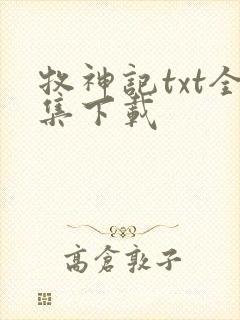 牧神記txt全
集下載
高倉敦子